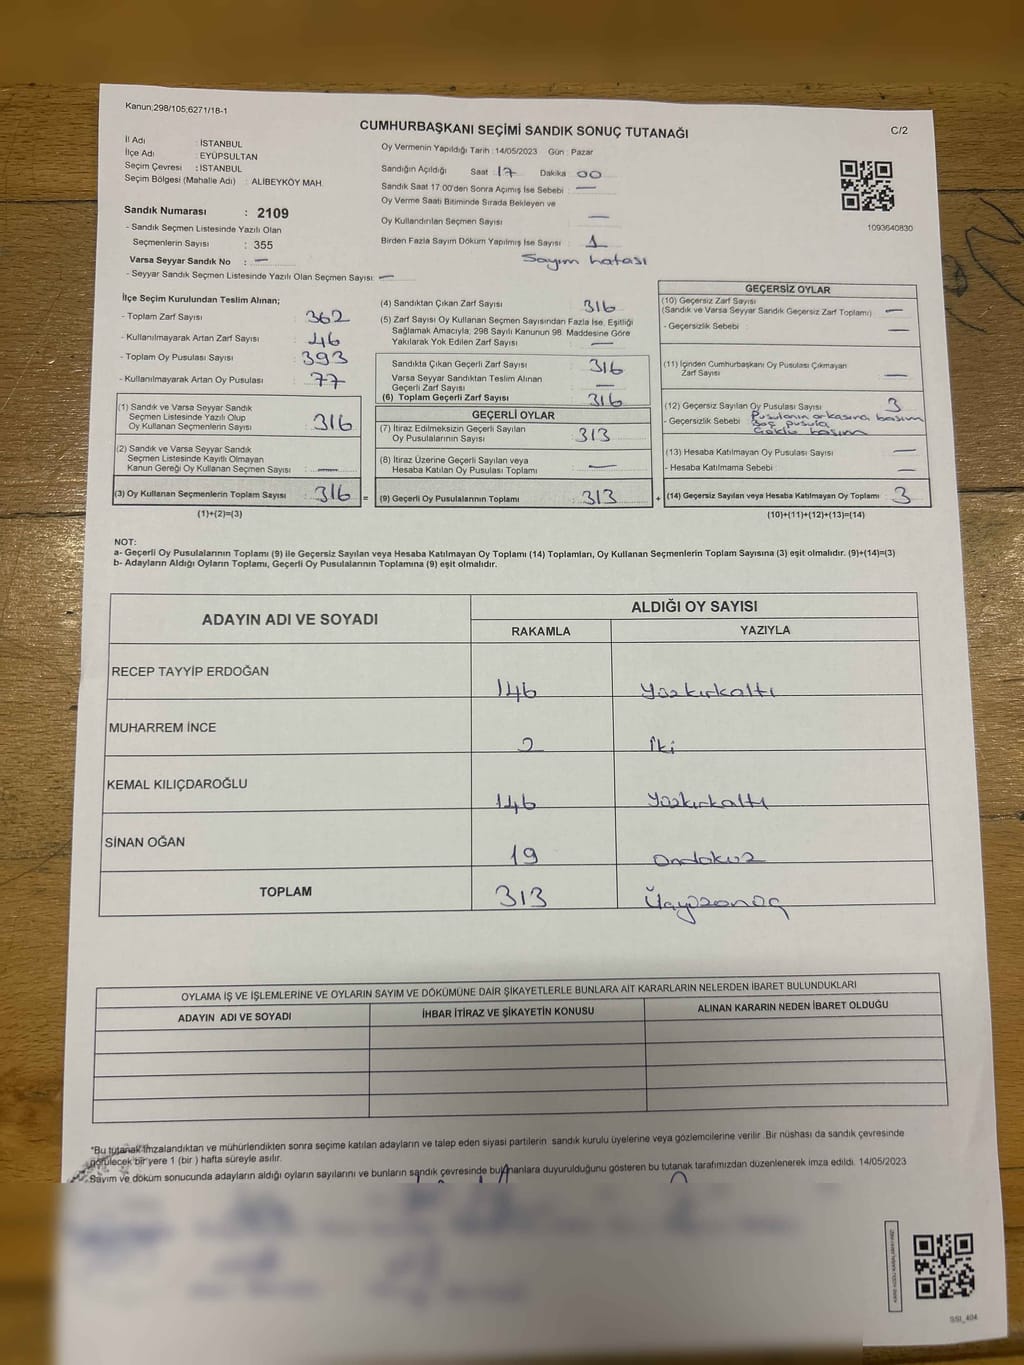 Kanun;298/105;6271/18-1
CUMHURBAŞKANI SEÇİMİ SANDIK SONUÇ TUTANAĞI
C/2
İl Adı : İSTANBUL
İlçe Adı : EYÜPSULTAN
Seçim Çevresi : İSTANBUL
Seçim Bölgesi (Mahalle Adı) : ALİBEYKÖY MAH.
Oy Vermenin Yapıldığı Tarih : 14/05/2023 Gün : Pazar
Sandığın Açıldığı Saat : 17 Dakika : 00
Sandık Saat 17.00'den Sonra Açımış İse Sebebi : —
Oy Verme Saati Bitiminde Sırada Bekleyen ve
Oy Kullandırılan Seçmen Sayısı —
Birden Fazla Sayım Döküm Yapılmış İse Sayısı : 1
Sayım hatası
1093640830
Sandık Numarası : 2109
- Sandık Seçmen Listesinde Yazılı Olan
Seçmenlerin Sayısı : 355
Varsa Seyyar Sandık No : —
- Seyyar Sandık Seçmen Listesinde Yazılı Olan Seçmen Sayısı: —
İlçe Seçim Kurulundan Teslim Alınan;
- Toplam Zarf Sayısı : 362
- Kullanılmayarak Artan Zarf Sayısı : 46
- Toplam Oy Pusulası Sayısı : 393
- Kullanılmayarak Artan Oy Pusulası : 77
(1) Sandık ve Varsa Seyyar Sandık
Seçmen Listesinde Yazılı Olup
Oy Kullanan Seçmenlerin Sayısı : 316
(2) Sandık ve Varsa Seyyar Sandık
Seçmen Listesinde Kayıtlı Olmayan
Kanun Gereği Oy Kullanan Seçmen Sayısı : —
(3) Oy Kullanan Seçmenlerin Toplam Sayısı : 316 =
(1)+(2)=(3)
(4) Sandıktan Çıkan Zarf Sayısı : 316
(5) Zarf Sayısı Oy Kullanan Seçmen Sayısından Fazla İse, Eşitliği
Sağlamak Amacıyla; 298 Sayılı Kanunun 98. Maddesine Göre
Yakılarak Yok Edilen Zarf Sayısı : —
Sandıkta Çıkan Geçerli Zarf Sayısı : 316
Varsa Seyyar Sandıktan Teslim Alınan
Geçerli Zarf Sayısı : —
(6) Toplam Geçerli Zarf Sayısı : 316
GEÇERLİ OYLAR
(7) İtiraz Edilmeksizin Geçerli Sayılan
Oy Pusulalarının Sayısı : 313
(8) İtiraz Üzerine Geçerli Sayılan veya
Hesaba Katılan Oy Pusulası Toplamı : —
(9) Geçerli Oy Pusulalarının Toplamı : 313 +
GEÇERSİZ OYLAR
(10) Geçersiz Zarf Sayısı
(Sandık ve Varsa Seyyar Sandık Geçersiz Zarf Toplamı) : —
- Geçersizlik Sebebi : —
(11) İçinden Cumhurbaşkanı Oy Pusulası Çıkmayan
Zarf Sayısı : —
(12) Geçersiz Sayılan Oy Pusulası Sayısı : 3
- Geçersizlik Sebebi : Pusulanın arkasına basım
Boş pusula
basım
(13) Hesaba Katılmayan Oy Pusulası Sayısı : —
- Hesaba Katılmama Sebebi : —
(14) Geçersiz Sayılan veya Hesaba Katılmayan Oy Toplamı : 3
(10)+(11)+(12)+(13)=(14)
NOT:
a- Geçerli Oy Pusulalarının Toplamı (9) ile Geçersiz Sayılan veya Hesaba Katılmayan Oy Toplamı (14) Toplamları, Oy Kullanan Seçmenlerin Toplam Sayısına (3) eşit olmalıdır. (9)+(14)=(3)
b- Adayların Aldığı Oyların Toplamı, Geçerli Oy Pusulalarının Toplamına (9) eşit olmalıdır.
ADAYIN ADI VE SOYADI
ALDIĞI OY SAYISI
RAKAMLA YAZIYLA
RECEP TAYYİP ERDOĞAN 146 Yüzkırkaltı
MUHARREM İNCE 2 İki
KEMAL KILIÇDAROĞLU 146 Yüzkırkaltı
SİNAN OĞAN 19 Ondokuz
TOPLAM 313 Üçyüzonüç
OYLAMA İŞ VE İŞLEMLERİNE VE OYLARIN SAYIM VE DÖKÜMÜNE DAİR ŞİKAYETLERLE BUNLARA AİT KARARLARIN NELERDEN İBARET BULUNDUKLARI
ADAYIN ADI VE SOYADI
İHBAR İTİRAZ VE ŞİKAYETİN KONUSU
ALINAN KARARIN NEDEN İBARET OLDUĞU
*Bu tutanak imzalandıktan ve mühürlendikten sonra seçime katılan adayların ve talep eden siyasi partilerin sandık kurulu üyelerine veya gözlemcilerine verilir .Bir nüshası da sandık çevresinde
görülecek bir yere 1 (bir ) hafta süreyle asılır.
Sayım ve döküm sonucunda adayların aldığı oyların sayılarını ve bunların sandık çevresinde bulunanlara duyurulduğunu gösteren bu tutanak tarafımızdan düzenlenerek imza edildi. 14/05/2023
SSI_404